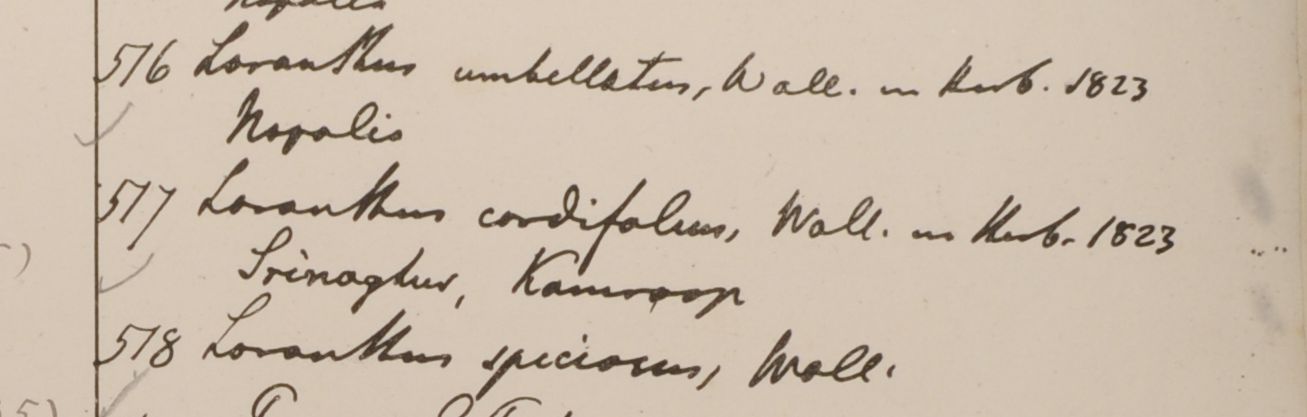 516 Loranthus umbellatus, Wall. in Herb. 1823
Nepalis
517 Loranthus cordifolius, Wall. in Herb. 1823
Srinaghur, Kamroop
518 Loranthus speciosus, Wall.